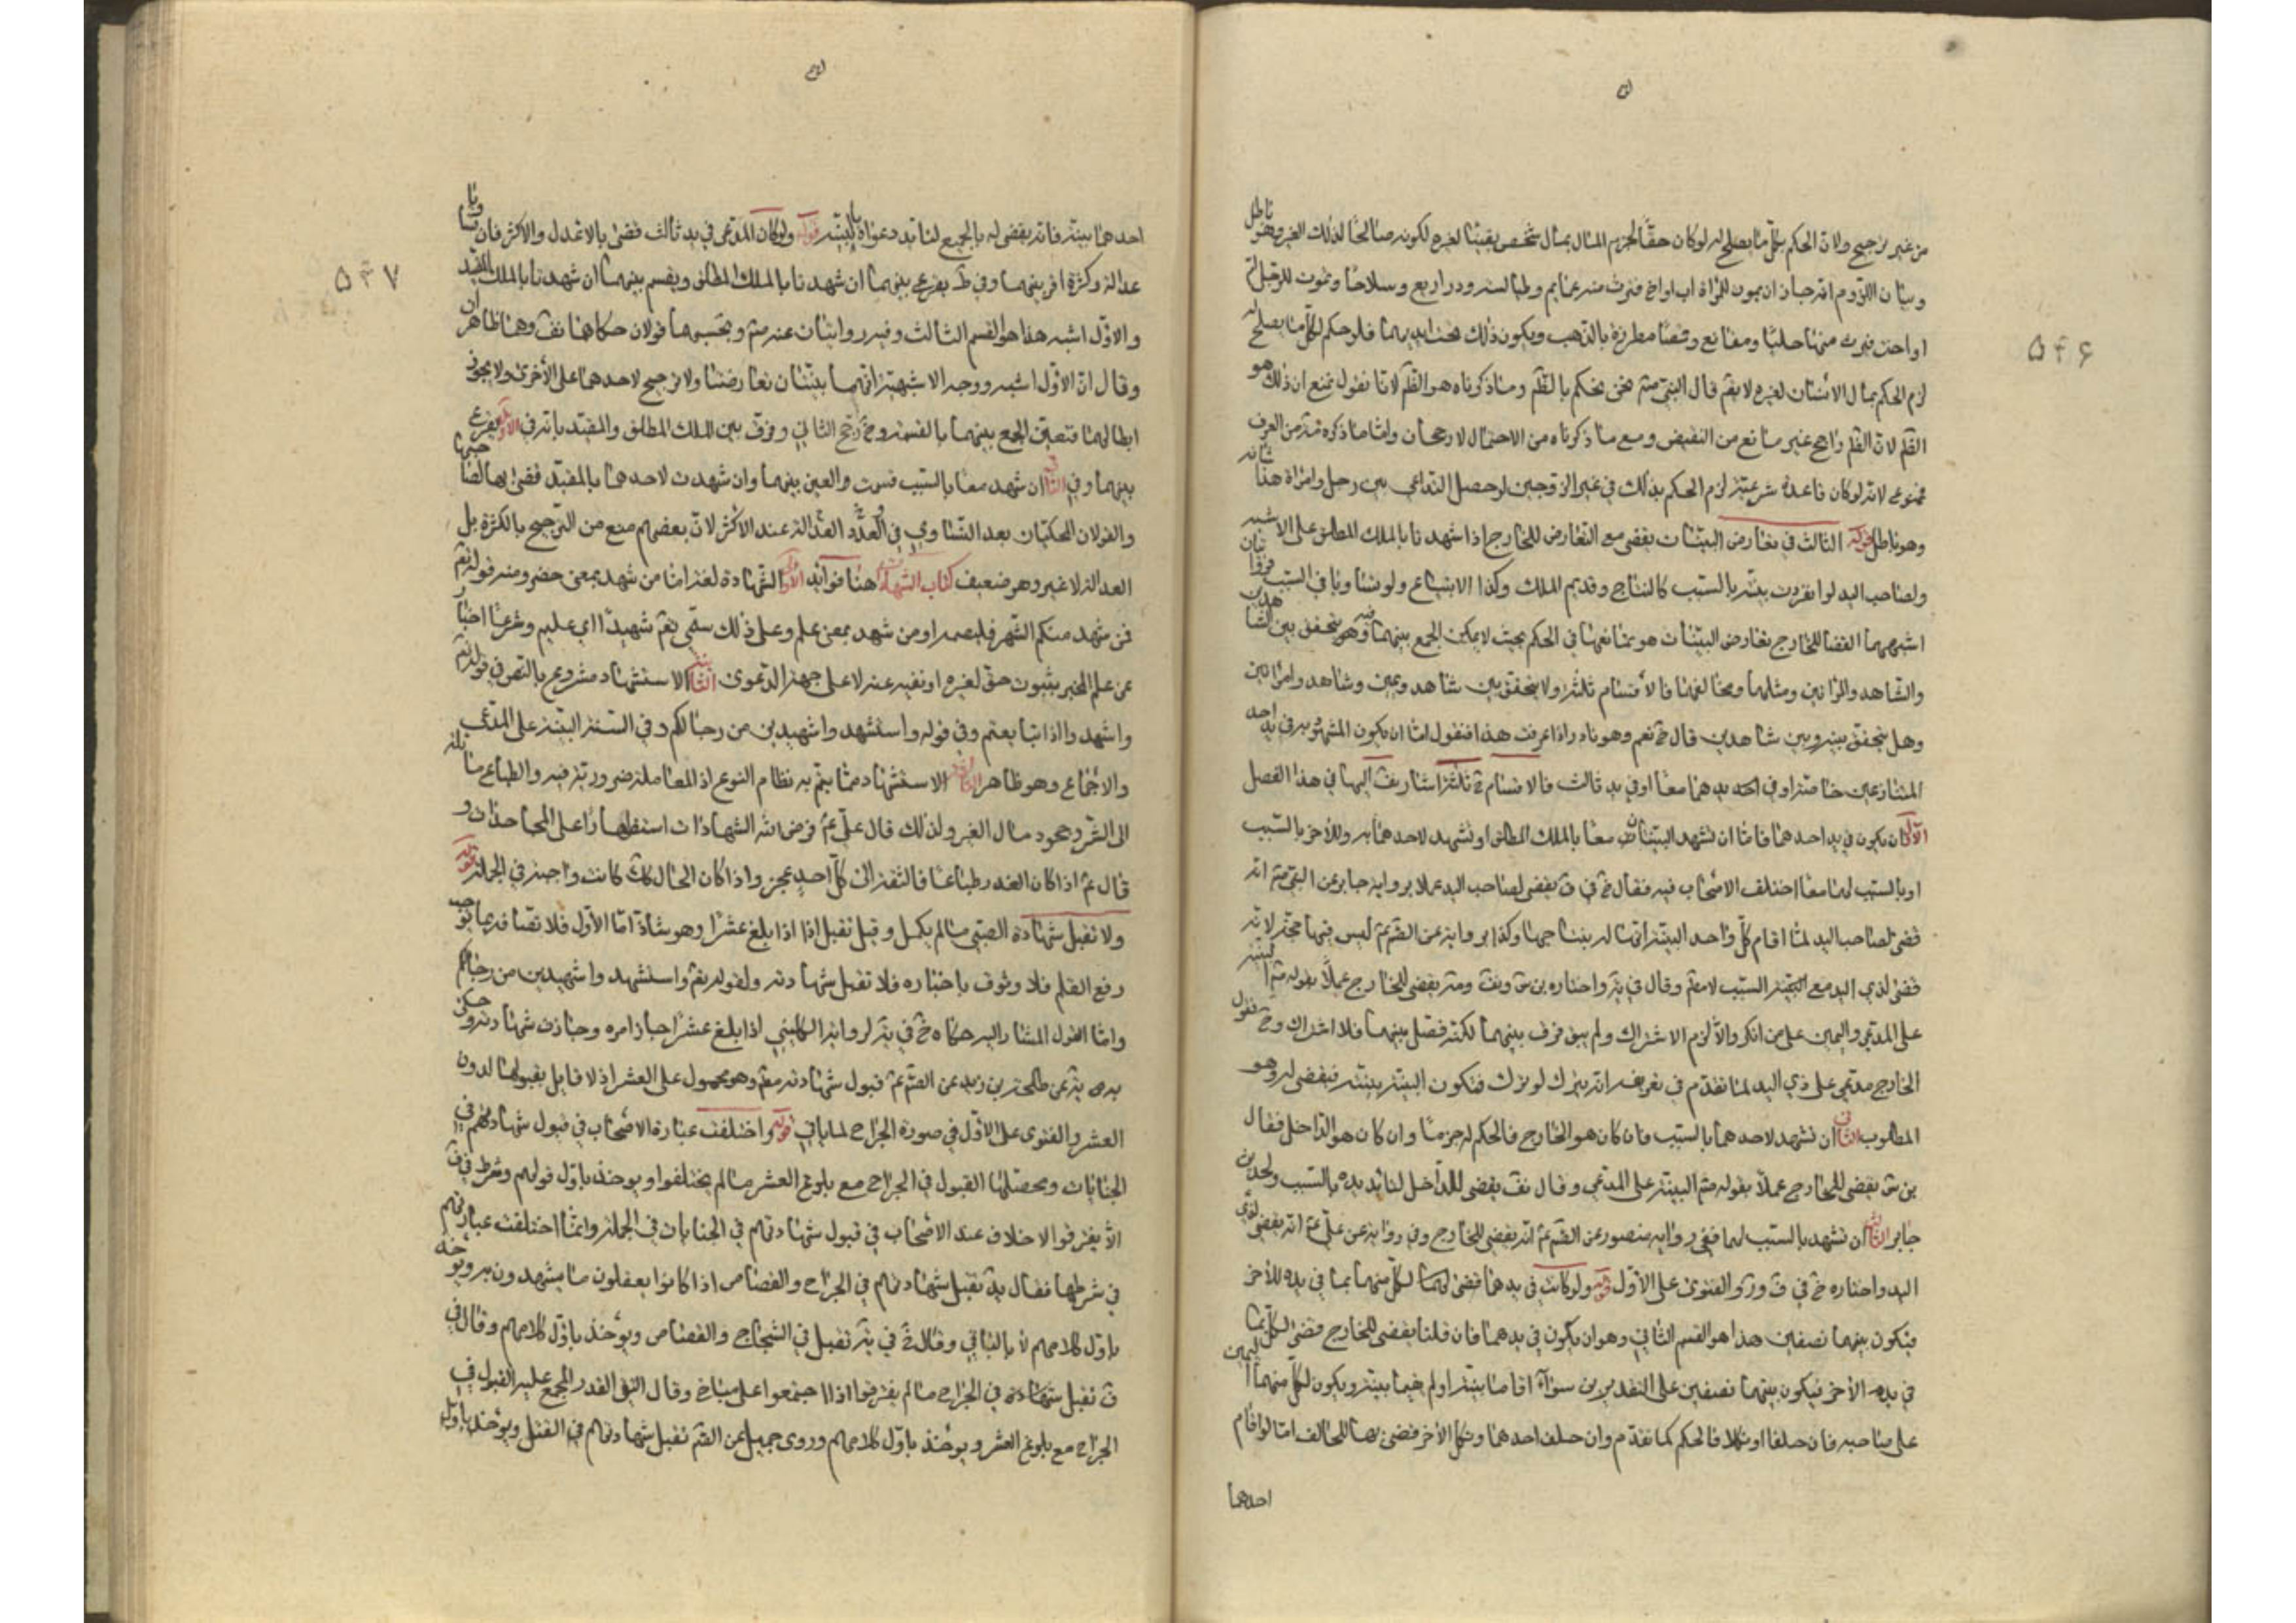 من غير ترجيح ولان الحكم بكل ما يصلح له لو كان حقا لجزم المثال بمال شخص يقينا لغيره لكونه صالحا لذلك الغير وهو باطل
وبيان اللزوم انه جاز ان يموت للمراة اب او اخ فترث منه عمايم وطيالسة ودراريع وسلاحا وتموت للرجل ام
او اخت فيرث منها حليا ومقانع وقمصا مطرزة بالذهب ويكون ذلك تحت ايديهما فلو حكم لكل بما يصلح له
لزم الحكم بمال الانسان لغيره لا يقم قال النبي صم نحن نحكم بالظم وما ذكرناه هو الظم لانا نقول نمنع ان ذلك هو
الظم لان الظم راجح غير مانع من النقيض ومع ما ذكرناه من الاحتمال لا رجحان واما ما ذكره ثمة من العرف
ممنوع لانه لو كان قاعدة شرعية لزم الحكم بذلك في غير الزوجين لو حصل التداعي بين رجل وامراة هذا شانه
وهو باطل قوله الثالث في تعارض البينات يقضى مع التعارض للخارج اذا شهدتا بالملك المطلق على الاشبه
ولصاحب اليد لو انفردت بينته بالسبب كالنتاج وقديم الملك وكذا الابتياع ولو تساويا في السبب فروايتان
اشبههما القضا للخارج تعارض البينات هو تمانعها في الحكم بحيث لا يمكن الجمع بينهما فيه وهو يتحقق بين الشاهدين
والشاهد والمراتين ومثلهما ومخالفهما فالاقسام ثلثة ولا يتحقق بين شاهد ويمين وشاهد وامراتين
وهل يتحقق بينه وبين شاهدين قال خ نعم وهو نادر اذا عرفت هذا فنقول اما ان يكون المشهود به في يد احد
المتنازعين خاصة او في يدهما معا او في يد ثالث فالاقسام ح ثلثة اشار المص اليها في هذا الفصل
الاول ان يكون في يد احدهما فاما ان تشهد البينتان معا بالملك المطلق او تشهد لاحدهما به وللاخر بالسبب
او بالسبب لهما معا اختلف الاصحاب فيه فقال خ في ف يقضى لصاحب اليد عملا برواية جابر عن النبي صم انه
قضى لصاحب اليد لما اقام كل واحد البينة انها له نتاجها وكذا برواية عن الص عم ليس فيها حجة لانه
قضى لذي اليد مع البينة السبب لا معم وقال في ية واختاره بن س ويف ومتر يقضى للخارج عملا بقوله صم البينة
على المدعي واليمين على من انكر والا لزم الاشتراك ولم يبق فرق بينهما لكنه فصل بينهما فلا اشتراك وح نقول
الخارج مدعي على ذي اليد لما تقدم في تعريف انه يترك لو ترك فتكون البينة بينته فيقضى له وهو
المطلوب الثاني ان تشهد لاحدهما بالسبب فان كان هو الخارج فالحكم له جزما وان كان هو الداخل فقال
بن س يقضى للخارج عملا بقوله صم البينة على المدعي وقال يف يقضى للداخل لتايد يده بالسبب ولحديث
جابر الثالث ان تشهد بالسبب لهما ففي رواية منصور عن الص عم انه يقضى للخارج وفي رواية عن علي عم انه يقضى لذي
اليد واختاره خ في ف ور والفتوى على الاول قوله ولو كانت في يدهما قضى لكل منهما بما في يده للاخر
فيكون بينهما نصفين هذا هو القسم الثاني وهو ان يكون في يدهما فان قلنا يقضى للخارج قضى لكل بما
في يد الاخر فيكون بينهما نصفين على التقديرين سوا اقاما بينة او لم يقيما بينة ويكون لكل منهما اليمين
على صاحبه فان حلفا او نكلا فالحكم كما تقدم وان حلف احدهما ونكل الاخر قضى بها للحالف اما لو اقام
احدهما
۵۴۶
احدهما بينة فانه يقضى له بالجميع لتايد دعواه بالبينة قوله ولو كان المدعى في يد ثالث قضى بالاعدل والاكثر فان تساويا
عدالة وكثرة اقرع بينهما وفي ط يقرع بينهما ان شهدتا بالملك المطلق ويقسم بينهما ان شهدتا بالملك المقيد
والاول اشبه هذا هو القسم الثالث وفيه روايتان عنهم وبحسبهما قولان حكاهما المص وهنا ظاهران
وقال ان الاول اشبه ووجه الاشبهية انهما بينتان تعارضتا ولا ترجيح لاحدهما على الاخرى ولا يجوز
ابطالهما فتعين الجمع بينهما بالقسمة وخ رجح الثاني وفرق بين الملك المطلق والمقيد بانه في الاول يقرع
بينهما وفي الثاني ان شهد معا بالسبب قسمت والعين بينهما وان شهدت لاحدهما بالمقيد قضى بها لصاحبها
والقولان المحكيان بعد التساوي في العدد والعدالة عند الاكثر لان بعضهم منع من الترجيح بالكثرة بل
العدالة لا غير وهو ضعيف كتاب الشهادات هنا فوايد الاولى الشهادة لغة اما من شهد بمعنى حضر ومنه قوله تعم
فمن شهد منكم الشهر فليصمه او من شهد بمعنى علم وعلى ذلك سمي تعم شهيدا اي عليم وشرعا اخبار
عن علم المخبر بثبوت حق لغيره او نفيه عنه لا على جهة الدعوى الثانية الاستشهاد مشروع بالنص في قوله تعم
واشهدوا اذا تبايعتم وفي قوله واستشهدوا شهيدين من رجالكم وفي السنة البينة على المدعي
والاجماع وهو ظاهر الثالثة الاستشهاد مما يتم به نظام النوع اذ المعاملة ضرورية فيه والطباع مايلة
الى الشر وجحود مال الغير ولذلك قال علي عم فرض الله الشهادات استظهارا على المجاحدات و
قال عم اذا كان الغدر طباعا فالثقة الى كل احد عجز واذا كان الحال كك كانت واجبة في الجملة قوله
ولا تقبل شهادة الصبي ما لم يكمل وقيل تقبل اذا بلغ عشرا وهو شاذ اما الاول فلا نقنا قد
رفع القلم فلا وثوق باخباره فلا تقبل شهادته ولقوله تعم واستشهدوا شهيدين من رجالكم
واما القول المشار اليه حكاه خ في ية لرواية الكليني اذا بلغ عشرا جاز امره وجازت شهادته وحكى
عن طلحة بن زيد عن الص عم قبول شهادته معم وهو محمول على العشر اذ لا قايل بقبولها لدون
العشر والفتوى على الاول في صورة الجراح لما ياتي قوله واختلف عبارة الاصحاب في قبول شهادتهم في
الجنايات ومحصلها القبول في الجراح مع بلوغ العشر ما لم يختلفوا ويوخذ باول قولهم وشرط في ف
الا يفترقوا لا خلاف عند الاصحاب في قبول شهادتهم في الجنايات في الجملة وانما اختلفت عبارتهم
في شرطها فقال يد تقبل شهادتهم في الجراح والقصاص اذا كانوا يعقلون ما يشهدون به ويوخذ
باول كلامهم لا بالثاني وقال خ في ية تقبل في الشجاج والقصاص ويؤخذ باول كلامهم وقال في
ف تقبل شهادته في الجراح ما لم يفترقوا اذا اجتمعوا على مباح وقال التقي القدر المجمع عليه القبول في
الجراح مع بلوغ العشر ويوخذ باول كلامهم وروى جميل عن الص تقبل شهادتهم في القتل ويوخذ باول
۵۴۷